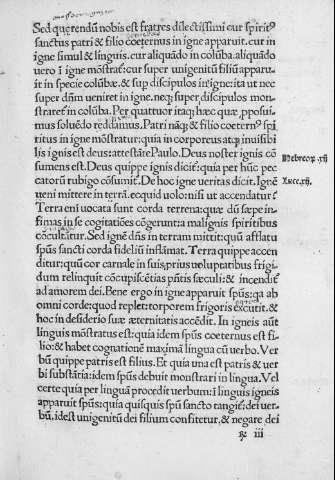 Sed querendũ nobis est fratres dilectissimi cur spirit⁹
sanctus patri & filio coeternus in igne apparuit. cur in
igne simul & linguis. cur aliquãdo in colũba. aliquãdo
uero ĩ igne mõstrat᷒: cur super unigenitũ filiũ apparu-
it in specie colũbæ. & sup discipulos in igne: ita ut nec
super dñm ueniret in igne. neq; super discipulos mon-
straret᷒ in colũba. Per quattuor itaq; hæc quæ, pposui-
mus soluẽdo reddamus. Patri nãq; & filio coetern⁹ spi
ritus in igne mõstratur: quia in corporeus atq; inuisibi
lis ignis est deus: attestãte Paulo. Deus noster ignis cõ
Hebreoꝝ. xij
sumens est. Deus quippe ignis dicit᷒: quia per hũc pec
catorũ rubigo cõsumit᷒. De hoc igne ueritas dicit. Ignẽ
Luce. xij.
ueni mittere in terrã. ecquid uolo: nisi ut accendatur?
Terra eni uocata sunt corda terrena: quæ dũ sæpe in-
fimas in se cogitatiões cõgerunt: a malignis spiritibus
cõculcãtur. Sed ignẽ dñs in terram mittit: quũ afflatu
spũs sancti corda fideliũ inflãmat. Terra quippe accen
ditur: quũ cor carnale in suis, prius uoluptatibus frigi-
dum relinquit cõcupiscẽtias pñtis sæculi: & incendit᷒
ad amorem dei. Bene ergo in igne apparuit spũs: qa ab
omni corde: quod replet: torporem frigoris excutit. &
hoc in desiderio suæ æternitatis accẽdit. In igneis aũt
linguis mõstratus est: quia idem spũs coeternus est fi-
lio: & habet cognationẽ maximã lingua cũ uerbo. Ver
bũ quippe patris est filius. Et quia una est patris & uer
bi substãtia: idem spũs debuit monstrari in lingua. Vel
certe quia per linguã procedit uerbum: ĩ linguis igneis
apparuit spũs: quia quisquis spũ sancto tangit᷒: dei uer-
bũ. idest unigenitũ dei filium confitetur. & negare dei
iii